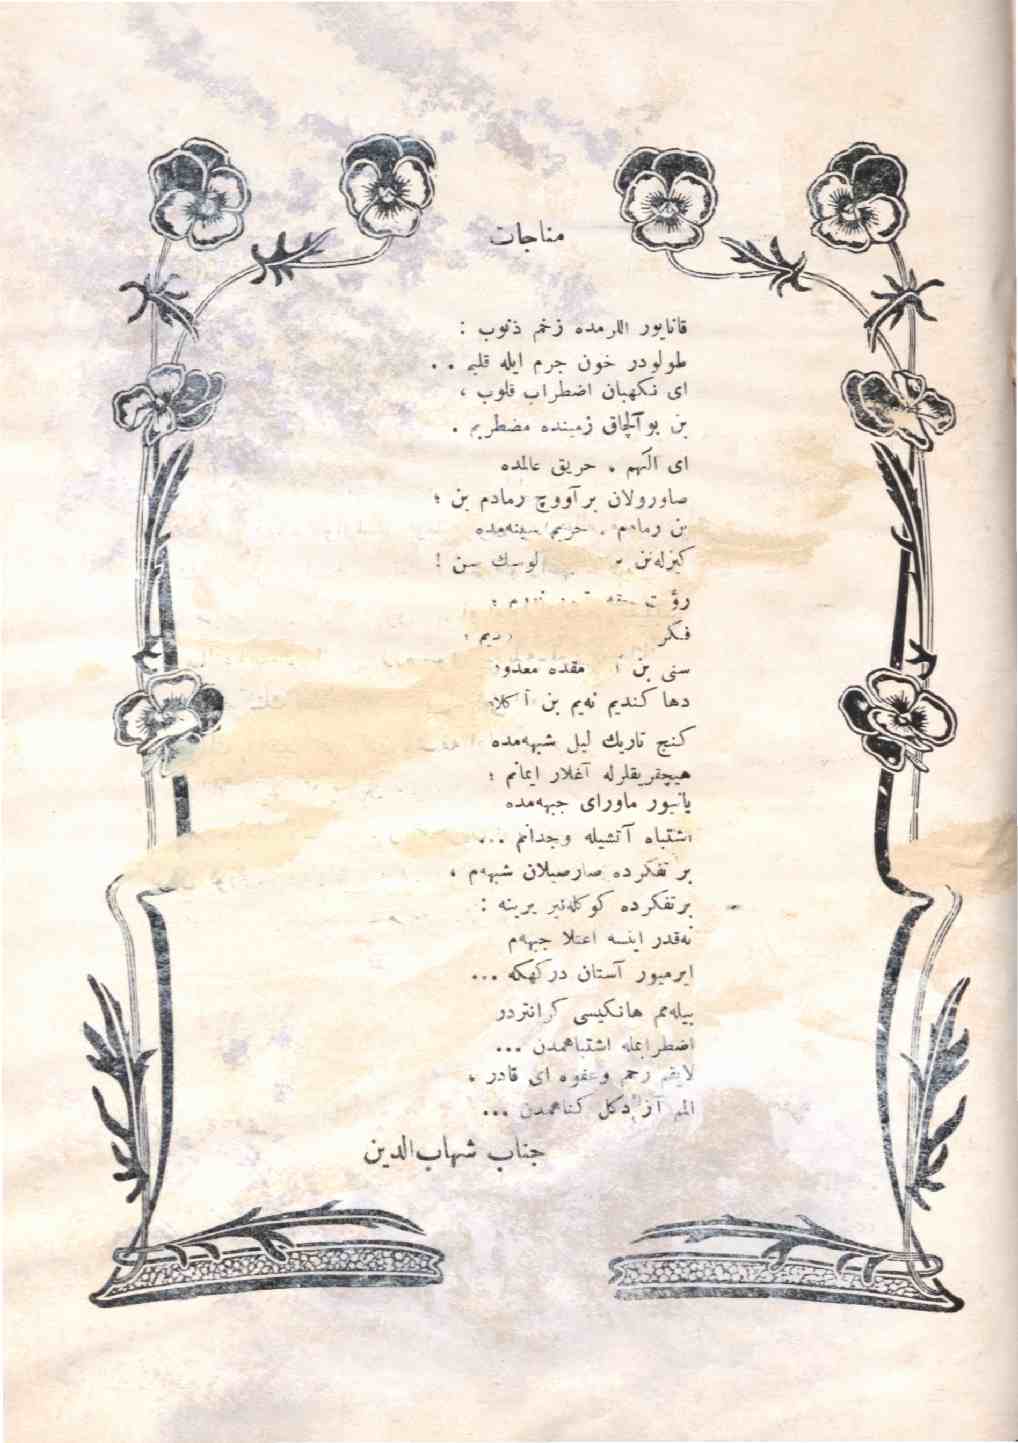 مناجات
قانایور اللرمده زخم ذنوب :
طولودر خون جرم ایله قلبم . .
ای نکهبان اضطراب قلوب ،
بن بو آلچاق زمینده مضطربم .
ای الٓهم ، حریق عالمده
صاورولان بر آووچ رمادم بن ؛
بن رمادم ، حریم سینه‌مده
کیزله‌نن لوسك سن !
فکر
سنی بن معذور
دها کندیم نه‌یم بن آکلا
کنج تاریك لیل شبهه‌مده
هیچقریقلرله آغلار ایمانم ؛
یانیور ماورای جبهه‌مده
اشتباه آتشیله وجدانم ...
بر تفکرده صارصیلان شبهه‌م ،
بر تفکرده کوکله‌نیر یرینه :
نه‌قدر اینسه اعتلا جبهه‌م
ایرمیور آستان درکهکه ...
بیله‌مم هانکیسی کرانتردر
اضطرابمله اشتباهمدن ...
لایقم رحم وعفوه ای قادر ،
الم آز دکل کناهمدن ...
جناب شهاب‌الدین